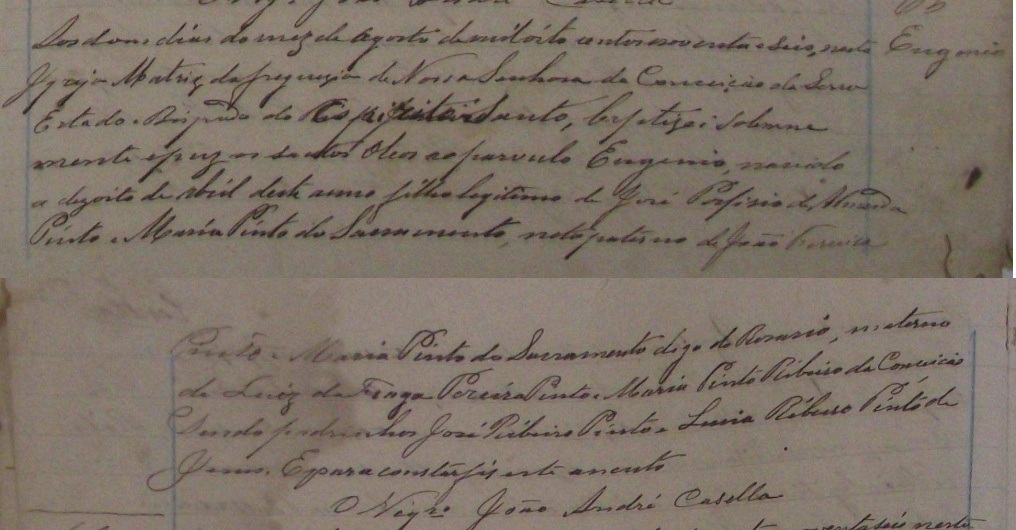 Aos dous dias do mez de Agosto de mil oito centos noventa e seis, nesta Eugenio
Igreja Matriz da freguezia de Nossa Senhora da Conceição da Serra
Estado Bispado do Espirito Santo, baptizei solemne
mente e puz os santos Oleos ao parvulo Eugenio, nascido
a dezoito de Abril deste anno filho legitimo de José Porfirio de Almeida
Pinto e Maria Pinto do Sacramento, neto paterno de João Pereira
Pinto e Maria Pinto do Sacramento digo do Rosario, materno
de Luiz da Fraga Pereira Pinto e Maria Pinto Ribeiro da Conceicão
Sendo padrinhos José Ribeiro Pinto e Luiza Ribeiro Pinto de
Jesus. E para constar fiz este assento
O Vigro João André Casella
nesta